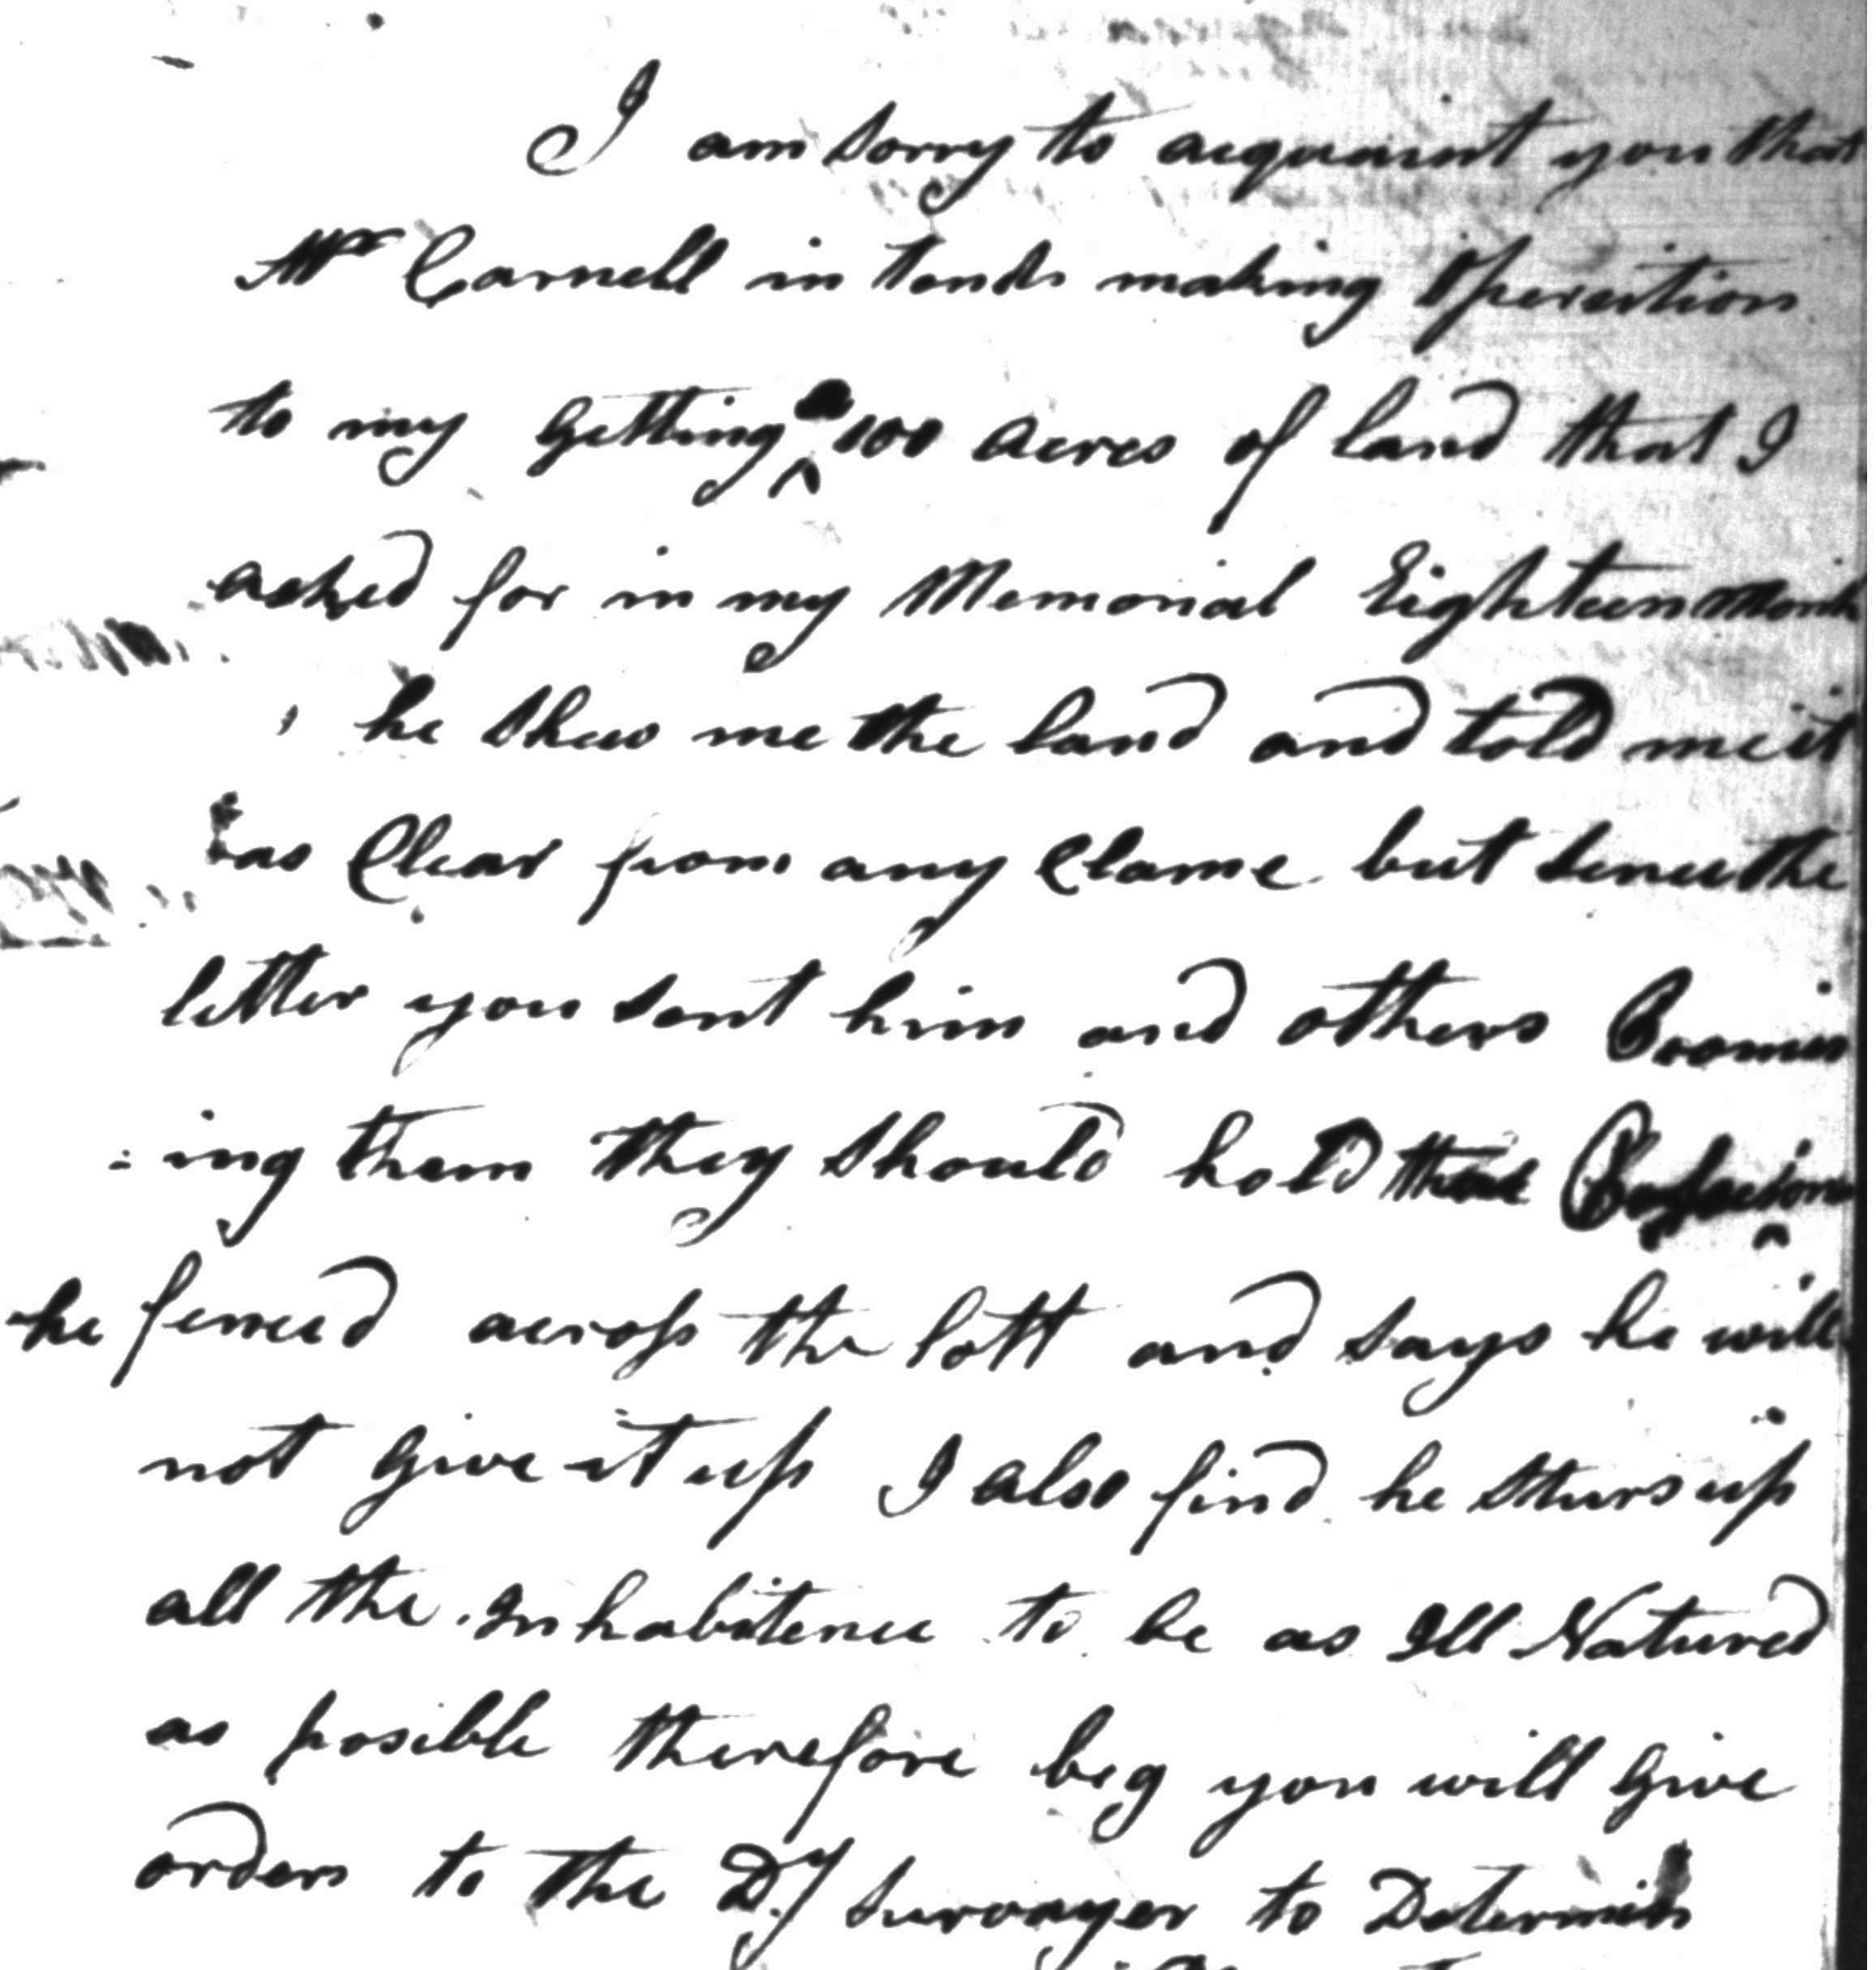 I am sorry to acquaint you that
Mr Carnell in tends making Opersition
to my Getting 100 acres of land that I
asked for in my Memorial Eighteen Month
he shew me the land and told me it
was Clear from any Clame but sence the
letter you sent him and others Promis
:ing them they should hold their Possesions
he fenced across the lott and says he will
not Give it up I also find he sturs up
all the Inhabitence to be as Ill Natured
as posible therefore beg you will Give
orders to the Dy Survayer to Determin